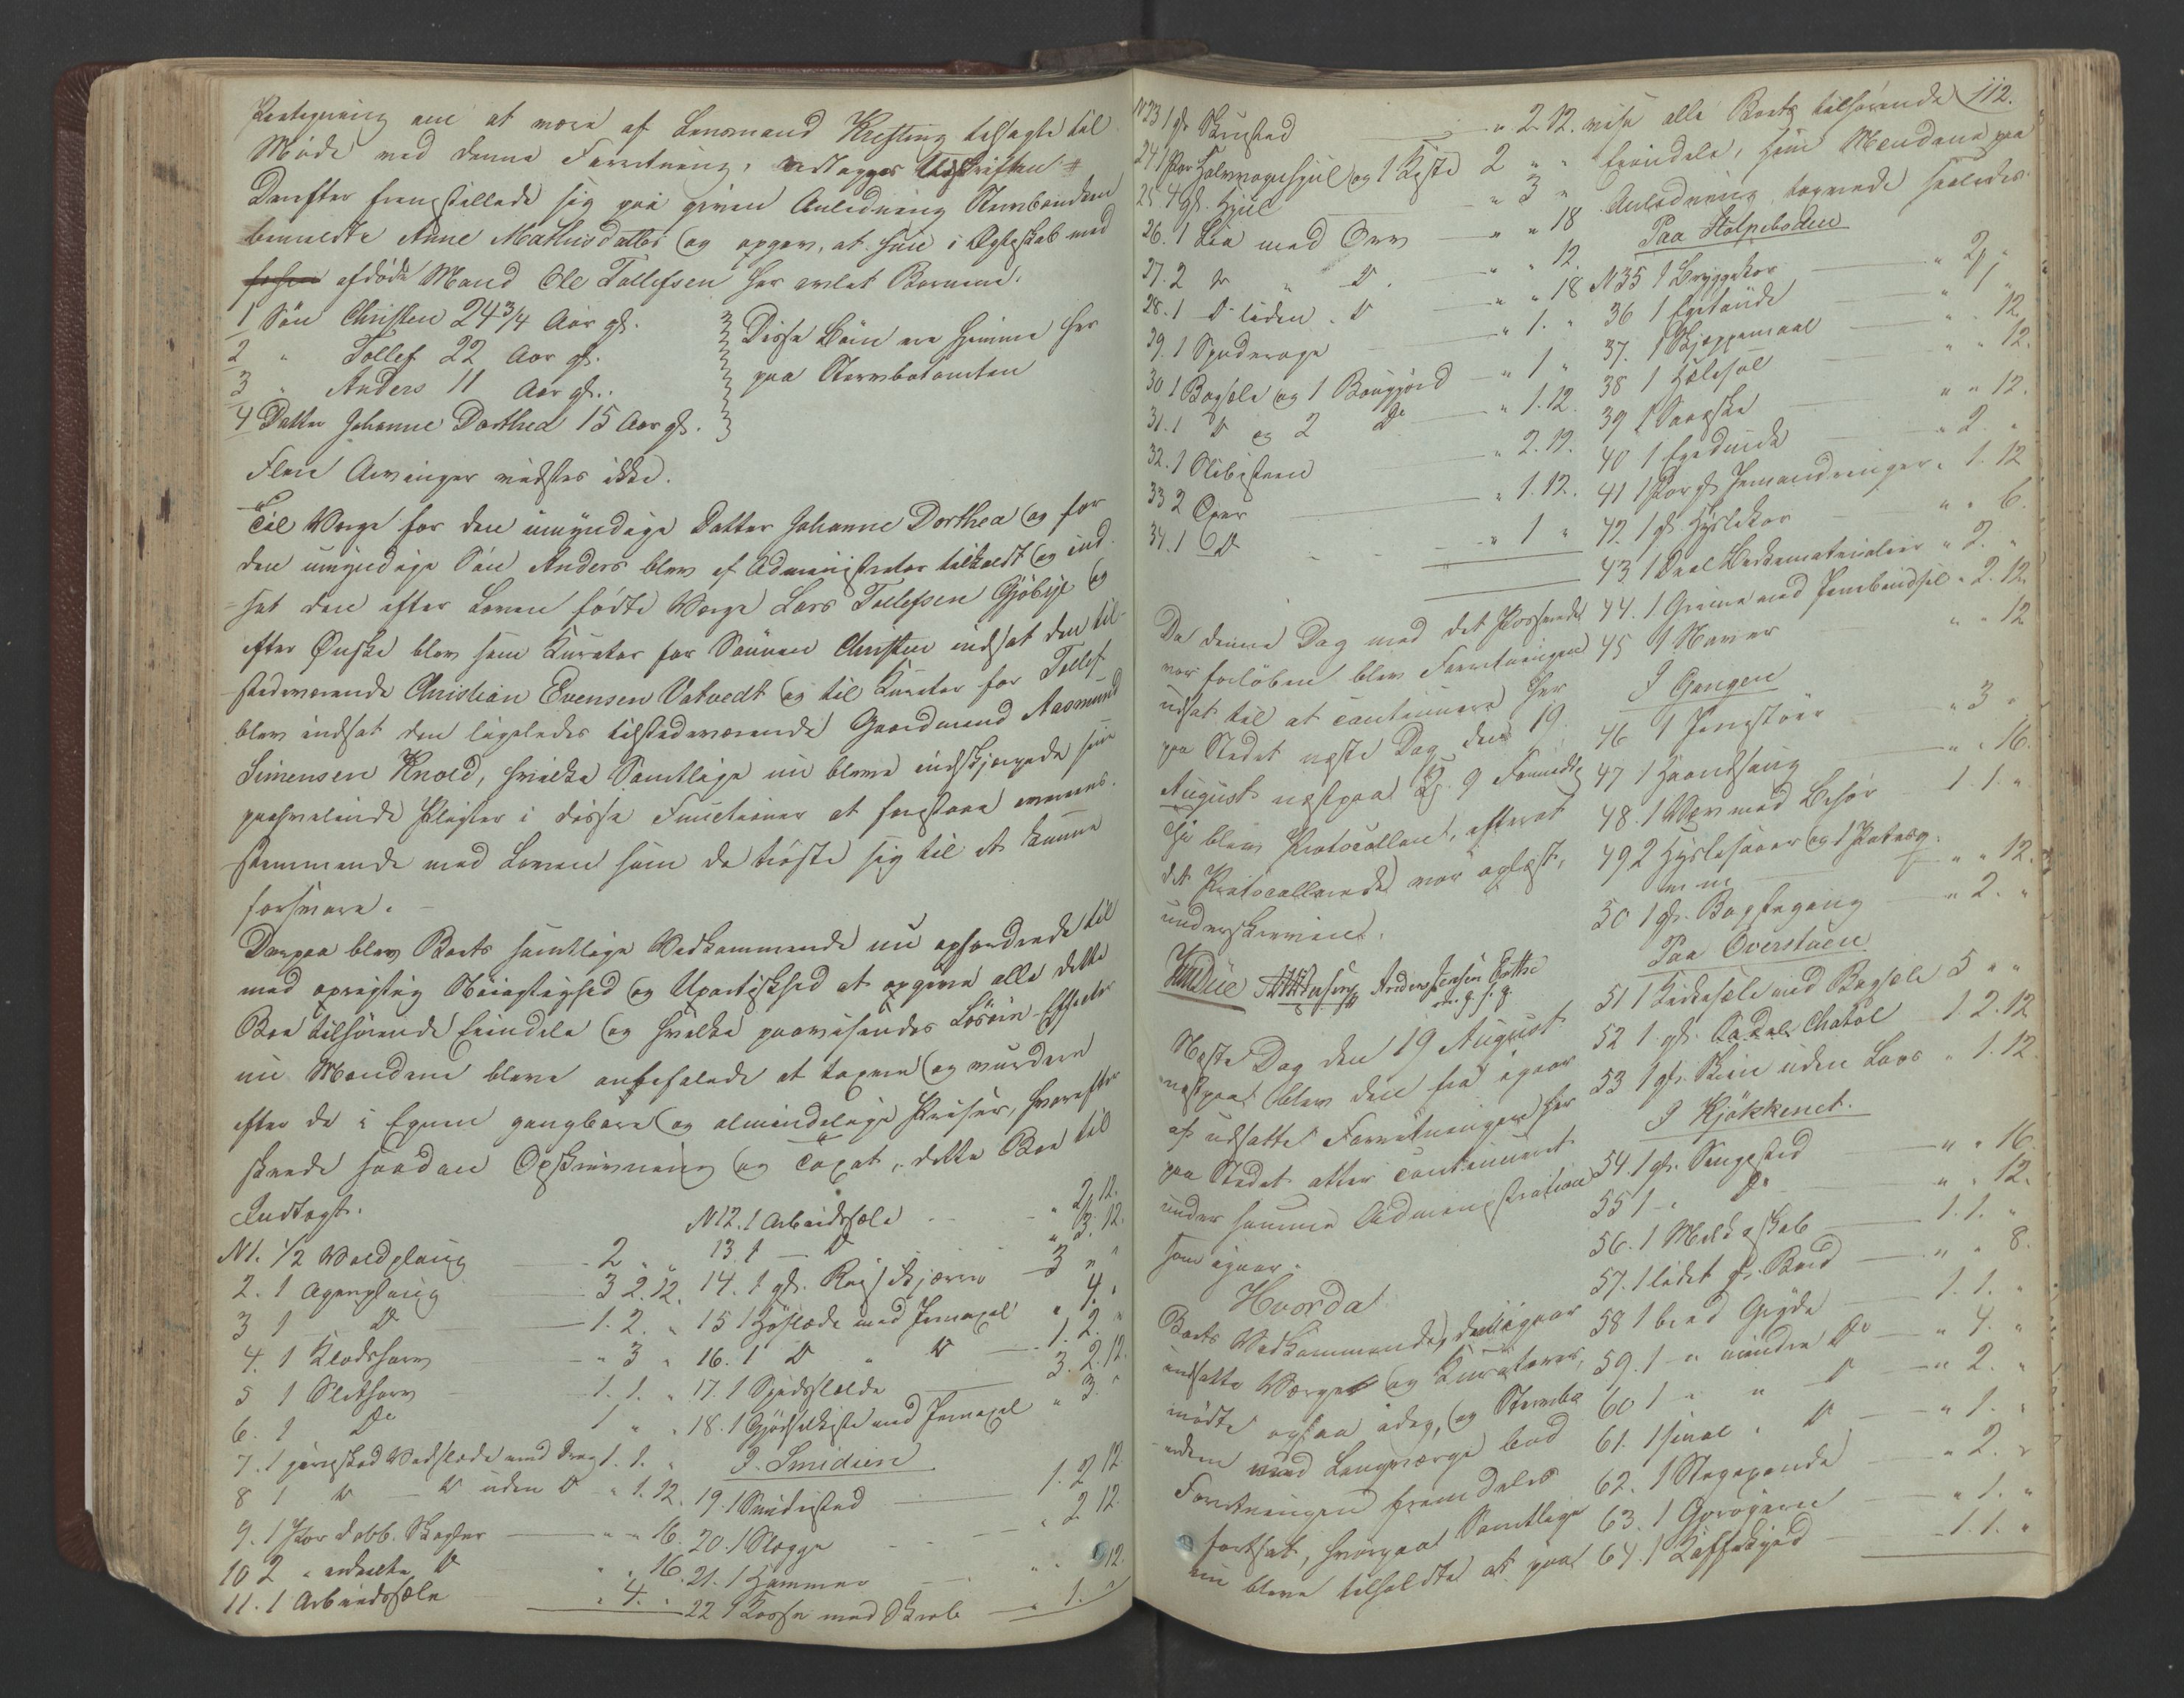 Paategning om at være af Lensmand Kiesting tilsagte til
Møde ved denne Forretning, vedtages Udskriften
Derefter fremstillede sig paa given Anledning Stervboenken
bemeldte Anne Mathisdatter og opgav, at hun i Ægteskab med
afdöde Mand Ole Tollefsen har avlet Børnene:
1 Sön Christen 24 3/4 Aar gl.
2 " Tollef 22 Aar gl.
3 " Anders 11 Aar gl.
4 Datter Johanne Dorthea 15 Aar gl.
Disse Börn ere hjemme her
paa Stervbotomten
Flere Arvinger vidstes ikke.
Til Værge for den umyndige Datter Johanne Dorthea og for
den umyndige Sön Anders blev af Administrator tilkaldt og ind-
sat den efter Loven födte Værge Lars Tollefsen Gjöbye og
efter Ønske blev som Kurator for Sönnen Christen indsat den til-
stedeværende Christian Evensen Vatvedt og til Kurator for Tollef
blev indsat den ligeledes tilstedeværende Gaardmand Aasmund
Simensen Knold, hvilke Samtlige nu bleve indskjærpede sine
paahvilende Pligter i disse Functioner at forestaae overens-
stemmende med Loven som de tröste sig til at kunne
forsvare.
Derpaa blev Boets samtlige Vedkommende nu opfordrede til
med oprigtig Nöiagtighed og Upartiskhed at opgive alle dette
Boe tilhörende Eiendele og hvilke paavisendes Lösöre Effecter
nu Mændene bleve anbefalede at taxere og vurdere
efter de i Egnen gangbare og almindelige Priser, hvorefter
skeede saadan Opskrivning og Taxat, dette Boe til
Indtægt.
N1. 1/2 Voldploug 2 " "
2. 1 Agerploug 3 2. 12.
3 1 Do 1. 2. "
4. 1 Klodsharv " 3 "
5 1 Sletharv 1. 1. "
6. 1 Do 1 " "
7. 1 jernskoed Vedslæde med Drag 1. 1. "
8 1 Do Do uden Do " 1. 12.
9. 1 Par dobb. Skagler " " 16.
10 2 " enkelte Do " " 16.
11. 1 Arbeidssæle " 4. "
N12. 1 Arbeidssæle " 2. 12.
13. 1 Do " 3. 12.
14. 1 gl. Reiskjærre 3 " "
15 1 Höslæde med Jernaxel " 4. "
16. 1 Do " Do 1. 2. "
17. 1 Spidsslæde 3. 2. 12.
18. 1 Gjödselkiste med Jernaxel " 3. "
I Smidien
19. 1 Smidiested 1. 2 12
20. 1 Slægge " 2 12.
21. 1 Hammer " " 12.
22 1 Kasse med Skrab " 1. "
112.
N23 1 gl. Skrusted " 2 12.
24 1 Par Halvvognhjul og 1 Kiste 2 " "
25 4 gl. Hjul " 3 "
26. 1 Lia med Orv " " 18
27. 2 Do " Do " " 12.
28. 1 Do liden Do " " 18
29. 1 Spaderage " 1. "
30 1 Bogsæle og 1 Bouggjord " 1 "
31. 1 Do og 2 Do " 1. 12.
32. 1 Slibesteen " 2. 12.
33 2 Øxer " 1. 12.
34. 1 Do " 1 "
Da denne Dag med det Passerede
var forlöben blev Forretningen
udsat til at continuere her
paa Stedet næste Dag den 19
August næstpaa Kl. 9 Formidg.
Thi blev Protocollen, efterat
det Protocollerede var oplæst,
underskreven.
Anders Jensen Rothe
m. g. s. g.
Næste Dag den 19 August
næstpaa blev den fra igaar
af udsatte Forretningen her
paa Stedet atter continueret
under samme Administration
som igaar.
Hvorda
Boets Vedkommende, de igaar
indsatte Værger og Kuratorer,
mödte ogsaa idag, og Stervbo-
enken med Laugværge bad
Forretningen fremdeles
fortsat, hvorpaa Samtlige
nu bleve tilholdte at paa-
vise alle Boets tilhörende
Eiendele, som Mændene paa
Anledning taxerede saaledes
Paa Stolpeboden
N35 1 Bryggekar " 2 "
36 1 Egetönde " 1 "
37. 1 Skjæppemaal " " 12
38 1 Hælesal " " 12.
39 1 " " 12.
40 1 Egedunk " 2. "
41 1 Par gl. Jernandringer " 1. 12
42. 1 gl. Hyslekar " " 6.
43 1 Deel Værkematerialier " 2. "
44. 1 Grime med Jernbindsel " 2. 12.
45 1 Naver " " 12
I Gangen
46 1 Jernstör " 3 "
47 1 Haandsaug " " 16.
48. 1 Væv med Behör 1. 1. "
49 2 Hyslesaaer og 1 Potteag.
m m " " 12.
50 1 gl. Bagstegang " 2. "
Paa Overstuen
51 1 Kirkesæle med Bagsæle 5 " "
52 1 gl. Sadel Chatol 1 2. 12
53 1 gl. Skrin uden Laas " 1. 12
I Kjökkenet.
54. 1 gl. Sengested " " 16.
55 1 " Do " " 12.
56. 1 Melkeskab 1. 1. "
57. 1 lidet gl. Bord " " 8.
58 1 bred Gryde 1. 1. "
59. 1 " mindre Do " 4. "
60 1 " " Do " 2. "
61. 1 smal " Do " 1. "
62. 1 Stegepande " 2. "
63. 1 Gorojern " 1. "
64. 1 Kaffekjed 1. 1. "